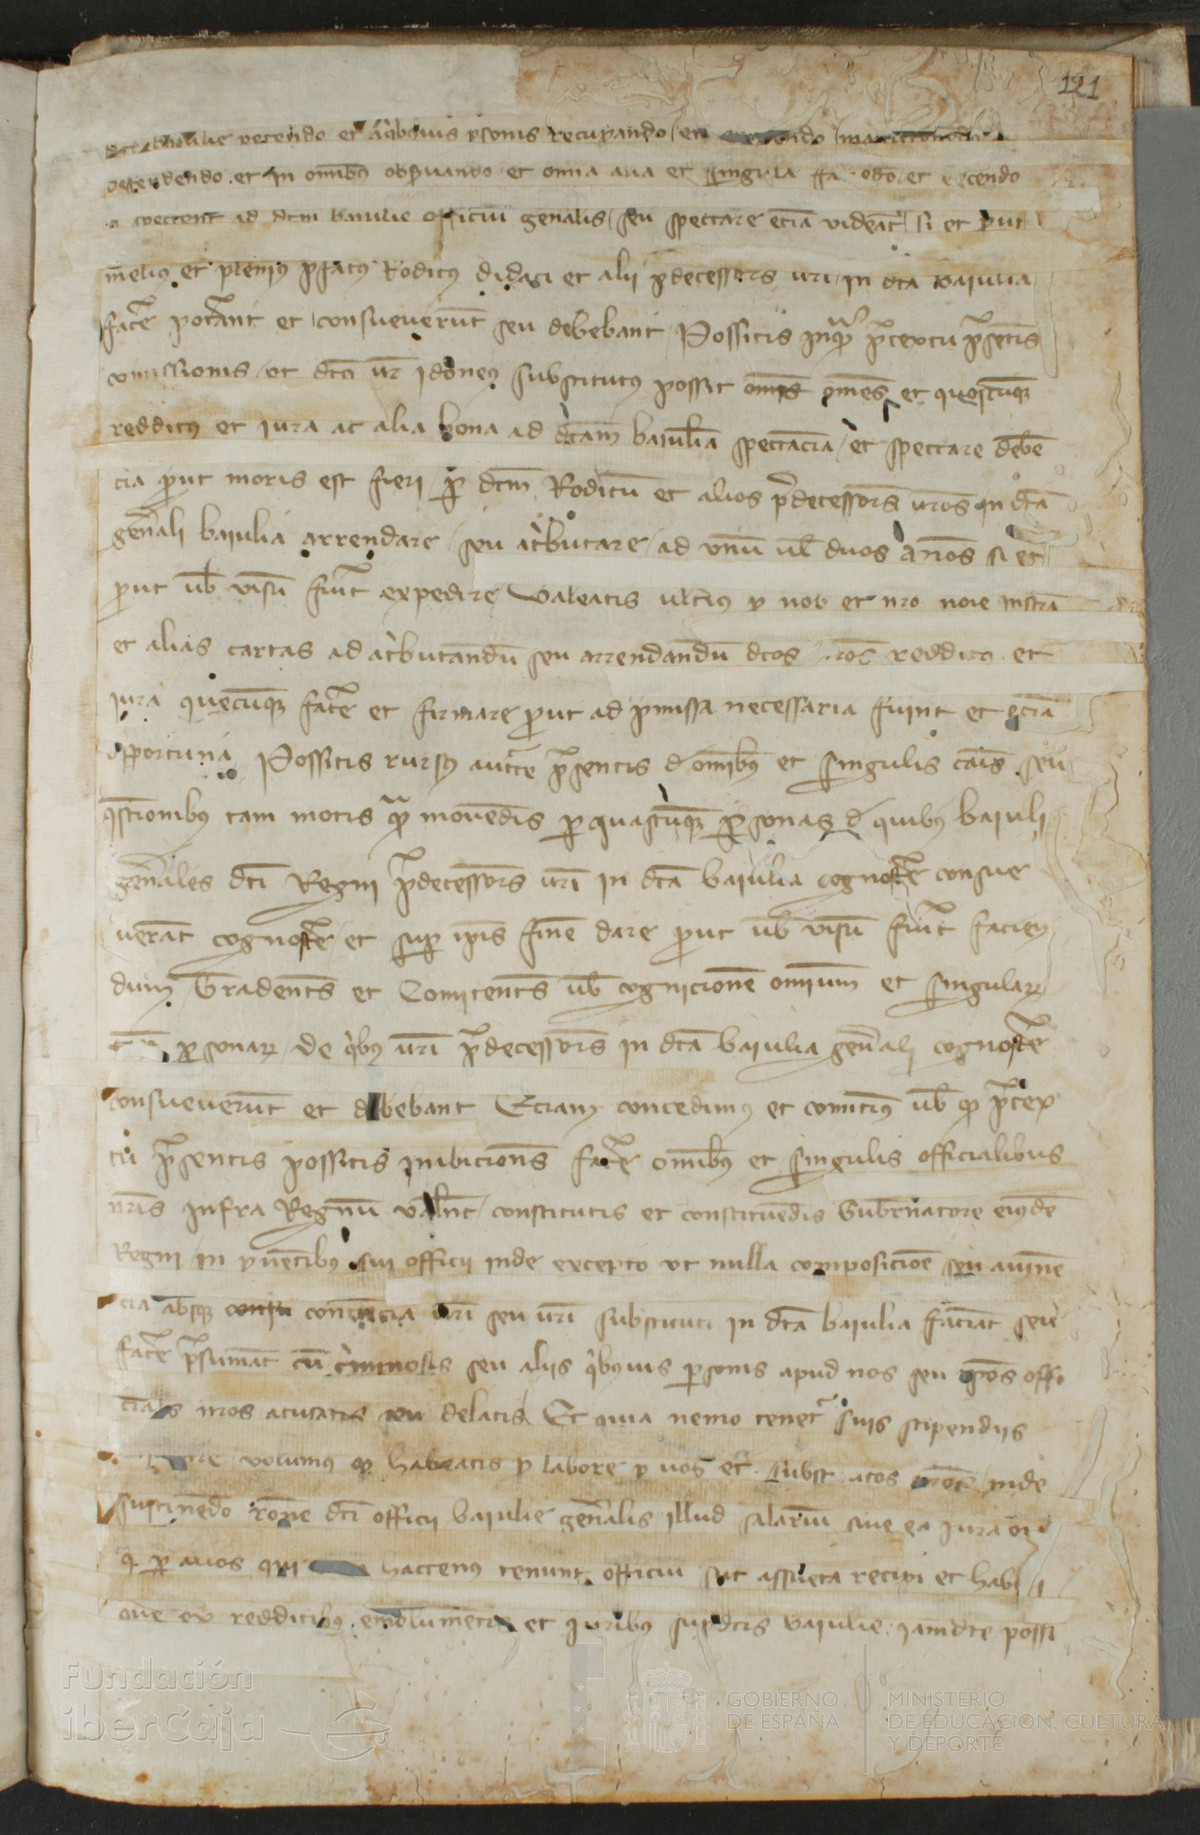 121
petendo et a quibusvis personis recuperando et
defendendo et in omnibus observando et omnia alia et singula faciendo et exercendo
spectent ad dictum baiulie officium generalis seu spectare eciam videantur si et prout
melius et plenius prefatus Rodicus didaci et alii predecessores vestri in dicta baiulia
facere poterant et consueverunt seu debebant Possitis inquam pretextu presentis
comissionis ut dicti vester idoneus substitutus possit omnes omnes et quoscumque
redditus et iura ac alia bona ad dictam baiuliam spectancia et spectare deben
cia prout moris est fieri per dictum Rodicum et alios predecessores vestros in dicta
generali baiulia arrendare seu atributare ad unum vel duos annos si et
prout vobis visum fuerit expedire Valeatis ulterius pro nobis et nostro nomine instrumenta
et alias cartas ad atributandum seu arrendandum dictos redditus et
iura quecumque facere et firmare prout ad premissa necessaria fuerint et eciam
opportuna Possitis rursus auctoritate presentis de omnibus et singulis causis seu
questionibus tam motis quam movendis per quascumque personas de quibus baiuli
generales dicti Regni predecessores vestri in dicta baiulia cognoscere consue
verant cognoscere et super ipsis finem dare prout vobis visum fuerit facien
dum Tradentes et Comitentes vobis cognicionem omnium et singularum
personarum de quibus vestri predecessores in dicta baiulia generali cognoscere
consueverunt et debebant Eciam concedimus et comitimus vobis quod pretex
tu presentis possitis inibiciones facere omnibus et singulis officialibus
nostris infra Regnum Valencie constitutis et constituendis Gubernatore eiusdem
Regni in proventibus sui officii inde excepto ut nulla composicionem seu avinen
cia absque consciencia vestri seu vestri substituti in dicta baiulia faciant seu
facere presumant cum criminosis seu aliis quibusvis personis apud nos seu ipsos offi
ciales nostros acusatis seu delatis Et quia nemo tenetur suis stipendiis
volumus quod habeatis pro labore per vos et substitutos inde
sustinendo racione dicti officii baiulie generalis illud salarium sive ea iura
per alios qui hactenus tenuerunt officium sunt assueta recipi et haberi
que ex redditibus emolumentis et iuribus supradictis baiulie iamdicte possi
Fundación
iberCaja
GOBIERNO
DE ESPAÑA
MINISTERIO
DE EDUCACIÓN, CULTURA
Y DEPORTE